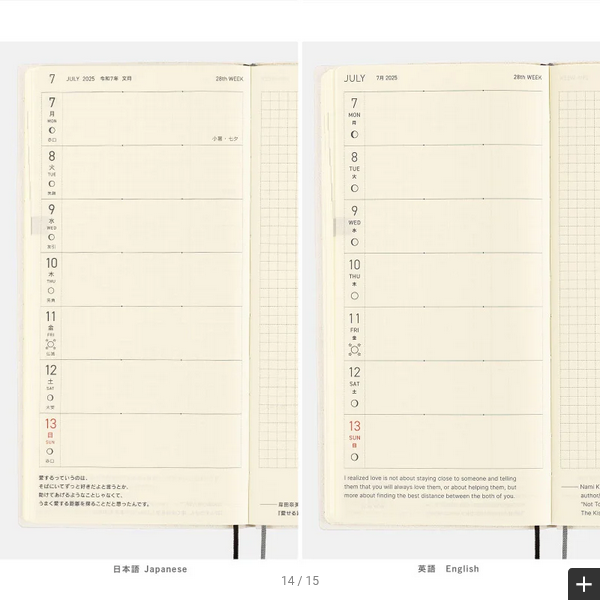 7 JULY 2025 令和7年 文月 28th WEEK
7
月
MON
赤口
小暑・七夕
8
火
TUE
先勝
9
水
WED
友引
10
木
THU
先負
11
金
FRI
仏滅
12
土
SAT
大安
13
日
SUN
赤口
愛するっていうのは、
そばにいてずっと好きだよと言うとか、
助けてあげるようなことじゃなくて、
うまく愛する距離を探ることだと思ったんです。
JULY 7月 2025 28th WEEK
7
MON
月
8
TUE
火
9
WED
水
10
THU
木
11
FRI
金
12
SAT
土
13
SUN
日
I realized love is not about staying close to someone and telling
them that you will always love them, or about helping them, but
more about finding the best distance between the both of you.
Nami K
author
"Not To
The Kis
日本語 Japanese
英語 English
14 / 15